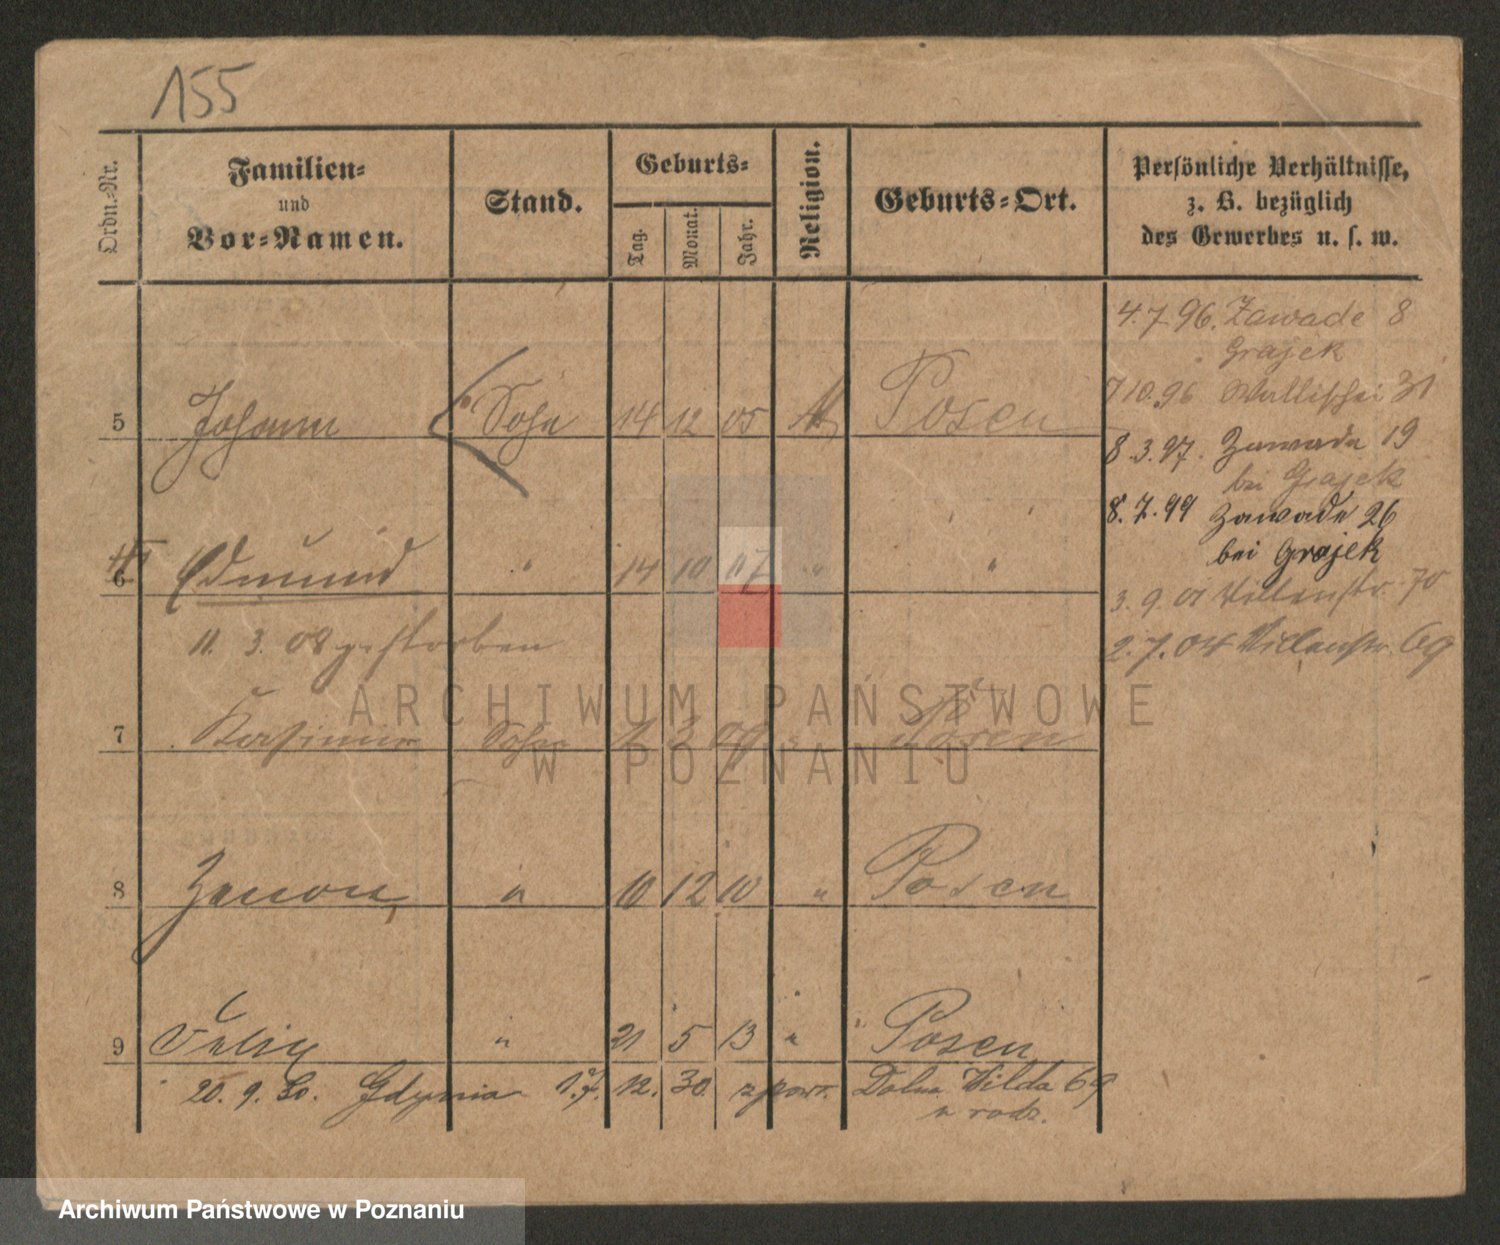 155
Ordn.-Nr.
Familien-
und
Vor-Namen.
Stand.
Geburts-
Tag.
Monat.
Jahr.
Religion.
Geburts-Ort.
Persönliche Verhältnisse,
z. B. bezüglich
des Gewerbes u. s. w.
4.7.96. Zawade 8
Grajek
7 10.96 Wallischei 31
5 Johann Sohn 14 12 05 Posen
8.3.97. Zawade 19
bei Grajek
8.7.99 Zawade 26
bei Grajek
6 Edmund " 14 10 07 " "
3.9.01 Villenstr. 70
11. 3. 08 gestorben
2.7.04 Villenstr. 69
ARCHIWUM PAŃSTWOWE
7 Kasimir Sohn 1 3 09 " Posen
W POZNANIU
8 Zenon " 10 12 10 " Posen
9 Felix " 21 5 13 " Posen
20. 9. 30. Gdynia 17. 12. 30 zpowr. Dolna Wilda 69
u rodz.
Archiwum Państwowe w Poznaniu